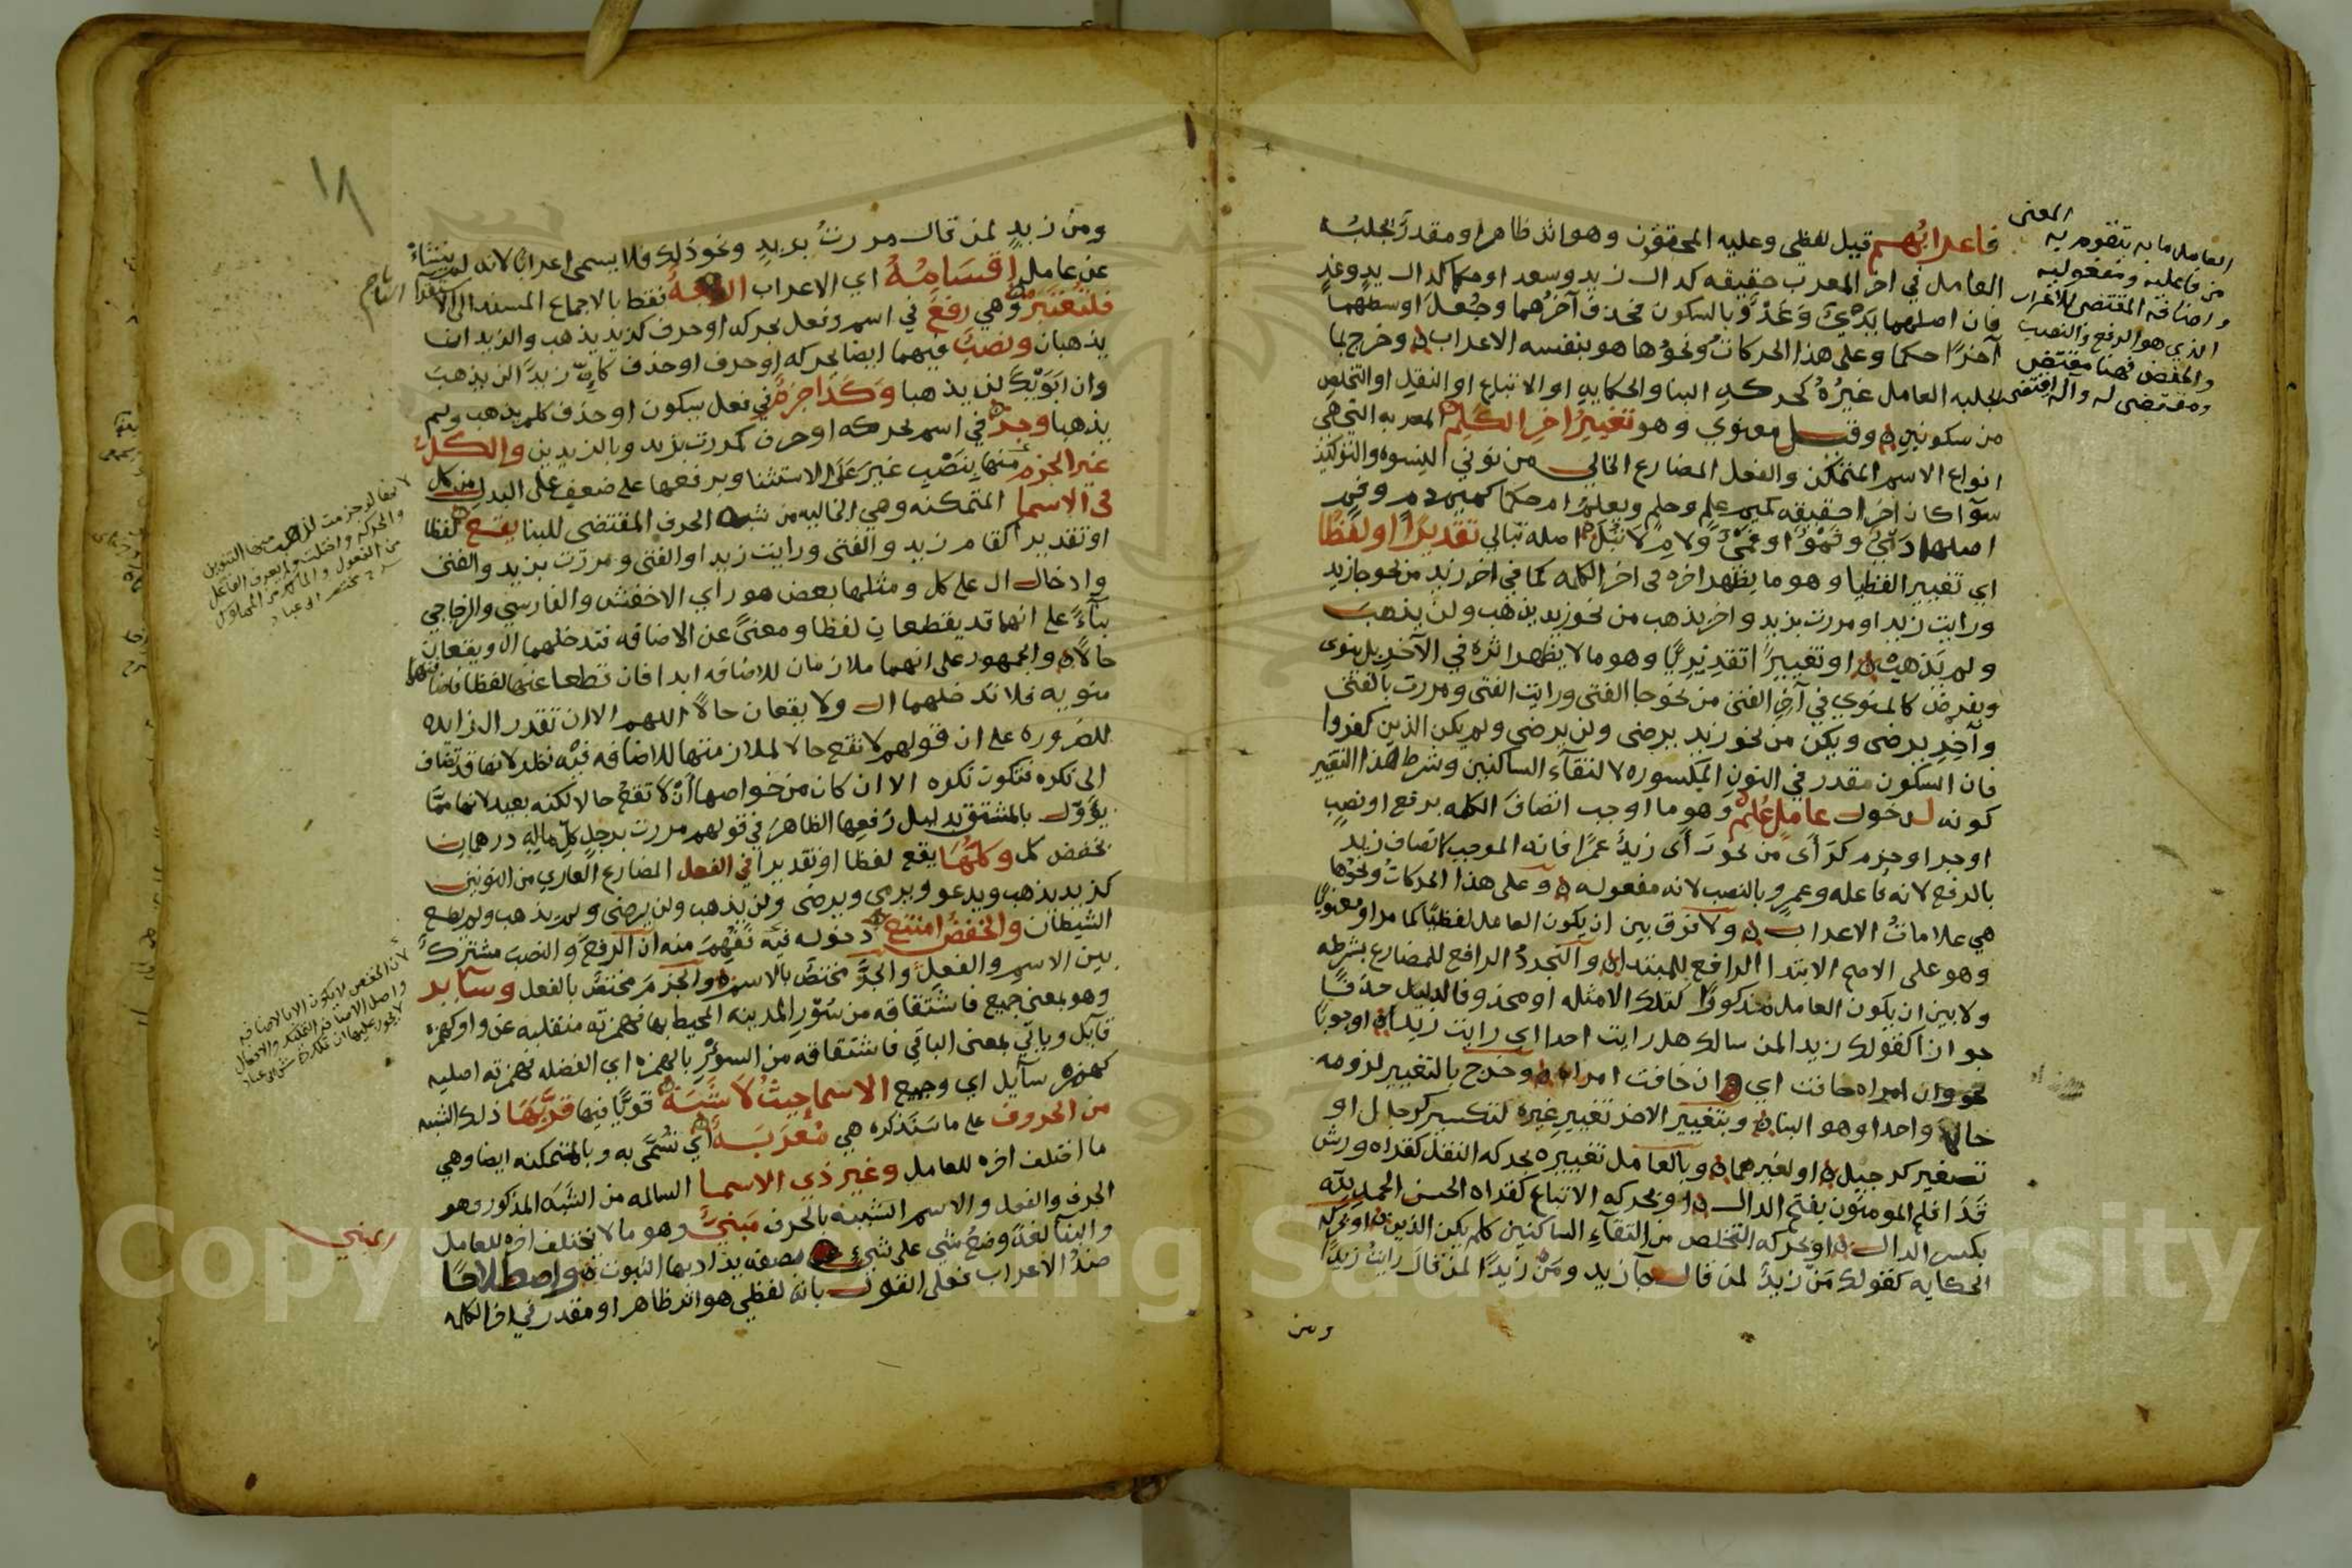 فاعرابهم قيل لفظي وعليه المحققون وهو اثر ظاهر او مقدر يجلبه
العامل في اخر المعرب حقيقه كدال زيد وسعد او حكما كدال يد وغد
فان اصلهما يَدَيٌ وغَدَوٌ بالسكون فحذف آخرهما وجُعل اوسطهما
آخرًا حكما وعلى هذا الحركات ونحوها هو بنفسه الاعراب وخرج بما
يجلبه العامل غيرُه كحركه البنا والحكايه او الاتباع او النقل او التخلص
من سكونين وقيل معنوي وهو تغيير اخر الكلم المعربه التي هي
انواع الاسم المتمكن والفعل المضارع الخالي من نوني النسوه والتوكيد
سوآ كان اخرا حقيقه كميم علم وحلم ويعلم ام حكما كميم دم وفم
اصلها دَمَيٌ وفموٌ او فميٌ ولام لا تبل اصله تبالي تقديرًا او لفظًا
اي تغييرا لفظيا وهو ما يظهر اثره في اخر الكلمه كما في اخر زيد من نحو جا زيد
ورايت زيدا ومررت بزيد واخر يذهب من نحو زيد يذهب ولن يذهبَ
ولم يذهبْ او تغييرًا تقديريًا وهو ما لا يظهر اثره في الآخر بل ينوى
ويفرض كالمنوي في آخر الفتى من نحو جا الفتى ورايت الفتى ومررت بالفتى
وآخِرِ يرضى ويكن من نحو زيد يرضى ولن يرضى ولم يكن الذين كفروا
فان السكون مقدر في النون المكسوره لالتقآء الساكنين وشرط هذا التغيير
كونه لدخول عاملٍ عُلِم وهو ما اوجب اتصاف الكلمه برفع او نصب
او جر او جزم كرَأى من نحو رَأى زيدٌ عمرًا فانه الموجب لاتصاف زيد
بالرفع لانه فاعله وعمرٍو بالنصب لانه مفعوله وعلى هذا الحركات ونحوها
هي علامات الاعراب ولا فرق بين ان يكون العامل لفظيًا كما مر او معنويا
وهو على الاصح الابتدا الرافع للمبتدا والتجردُ الرافع للمضارع بشرطه
ولا بين ان يكون العامل مذكورًا كتلك الامثله او محذوفا لدليل حذفًا
جوازا كقولك زيدا لمن سالك هل رايت احدا اي رايت زيدا او وجوبا
نحو وان امراه خافت اي وان خافت امراه وخرج بالتغيير لزومه
حالا واحدا وهو البنا وبتغيير الاخر تغيير غيره لتكسير كرجال او
تصغير كرجيل او لغيرهما وبالعامل تغييره بحركه النقل كقراه ورش
قَدَ افلح المومنون بفتح الدال او بحركه الاتباع كقراه الحسن الحمدِ لله
بكسر الدال او بحركه التخلص من التقآء الساكنين كلم يكن الذين او بحركه
الحكايه كقولك مَن زيدٌ لمن قال جآ زيد ومَن زيدًا لمن قال رايت زيدًا
ومن
المعنى
العامل ما به يتقوم به
من فاعليه ومفعوليه
واضافه المقتضي للاعراب
الذي هو الرفع والنصب
والخفض فهنا مقتض
ومقتضى له وآله اقتضى
١٨
ومن زيدٍ لمن قال مررت بزيدٍ ونحو ذلك فلا يسمى اعرابا لانه لم ينشأ
عن عامل اقسامُه اي الاعراب اربعة فقط بالاجماع المستند الى الاستقرآ التام
فلتُعتبر وهي رفع في اسم وفعل بحركه او حرف كزيد يذهب والزيدان
يذهبان ونصب فيهما ايضا بحركه او حرف او حذف كان زيدًا لن يذهبَ
وان ابَوَيْكَ لن يذهبا وكذا جزم في فعل بسكون او حذف كلم يذهب ولم
يذهبا وجر في اسم بحركه او حرف كمررت بزيد وبالزيدين والكل
غير الجزم منها بنصب غيرَ على الاستثنا وبرفعها على ضعف على البدل من كل
في الاسما المتمكنه وهي الخاليه من شبه الحرف المقتضي للبنا يقع لفظا
او تقديرا كقام زيد والفتى ورايت زيدا والفتى ومررت بزيد والفتى
وادخال ال على كل ومثلها بعض هو راي الاخفش والفارسي والزجاجي
بنآءً على انهما قد يقطعان لفظا ومعنًى عن الاضافه فتدخلهما ال ويقعان
حالًا والجمهور على انهما ملازمان للاضافه ابدا فان قطعا عنها لفظا فاضافتهما
منويه فلا تدخلهما ال ولا يقعان حالًا اللهم الا ان تقدر ال زايده
للضروره على ان قولهم لا تقع حالا لملازمتها للاضافه فيه نظر لانها قد تضاف
الى نكره فتكون نكره الا ان كان من خواصها أنْ لا تقع حالا لكنه بعيد لانها ممّا
يؤوّل بالمشتق بدليل رفعها الظاهرَ في قولهم مررت برجلٍ كلِّ ماله درهمان
بخفض كل وكلها يقع لفظا او تقديرا في الفعل المضارع العاري من النونين
كزيد يذهب ويدعو ويرمي ويرضى ولن يذهب ولن يرضى ولم يذهب ولم يطع
الشيطان والخفض امتنع دخوله فيه تفهم منه ان الرفع والنصب مشترك
بين الاسم والفعل والجرَّ مختصٌّ بالاسم والجزم مختص بالفعل وساير
وهو بمعنى جميع فاشتقاقه من سُور المدينه المحيط بها فهمزته منقلبه عن واو كهمزه
قآيل وياتي بمعنى الباقي فاشتقاقه من السؤر بالهمزه اي الفضله فهمزته اصليه
كهمزه سآيل اي وجميع الاسما حيث لا شَبَهَ قويًّا فيها قرَّبها ذلك الشبه
من الحروف على ما سنذكره هي مُعْرَبَةٌ اي تُسمَّى به وبالمتمكنه ايضا وهي
ما اختلف اخره للعامل وغير ذي الاسما السالمه من الشَبَه المذكور وهو
الحرف والفعل والاسم الشبيه بالحرف مَبنيٌّ وهو ما لا يختلف اخره للعامل
والبنآ لغةً وضعُ شي على شيءٍ على صفه يراد بها الثبوت واصطلاحًا
ضدُّ الاعراب فعلى القول بانه لفظي هو اثر ظاهر او مقدر في اخر الكلمه
لا يقال لو جزمت الاسما لذهب منها التنوين
والحركه واختلت ولم يعرف الفاعل
من المفعول
لان الخفض لا يكون الا بالاضافه
مبني